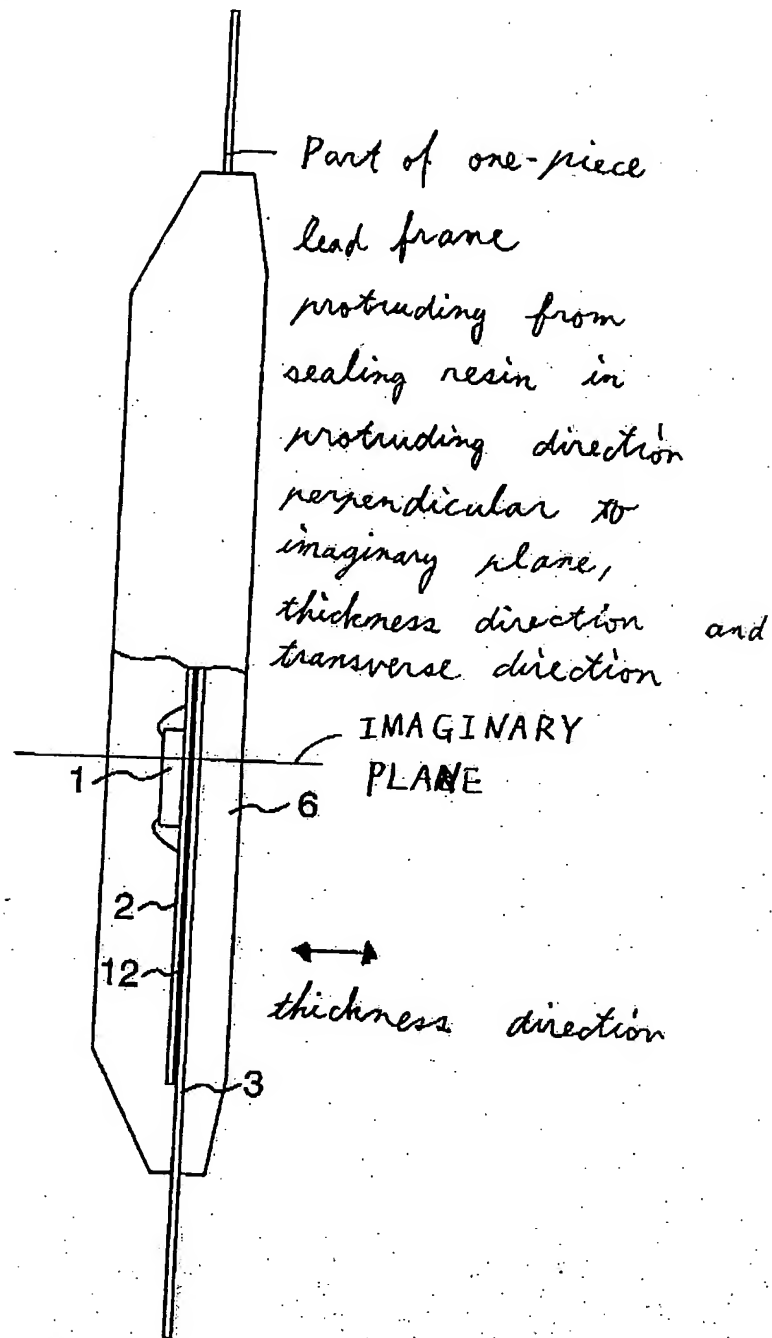 Part of one-piece
lead frame
protruding from
sealing resin in
protruding direction
perpendicular to
imaginary plane,
thickness direction and
transverse direction
IMAGINARY
PLANE
1
6
2
12
thickness direction
3